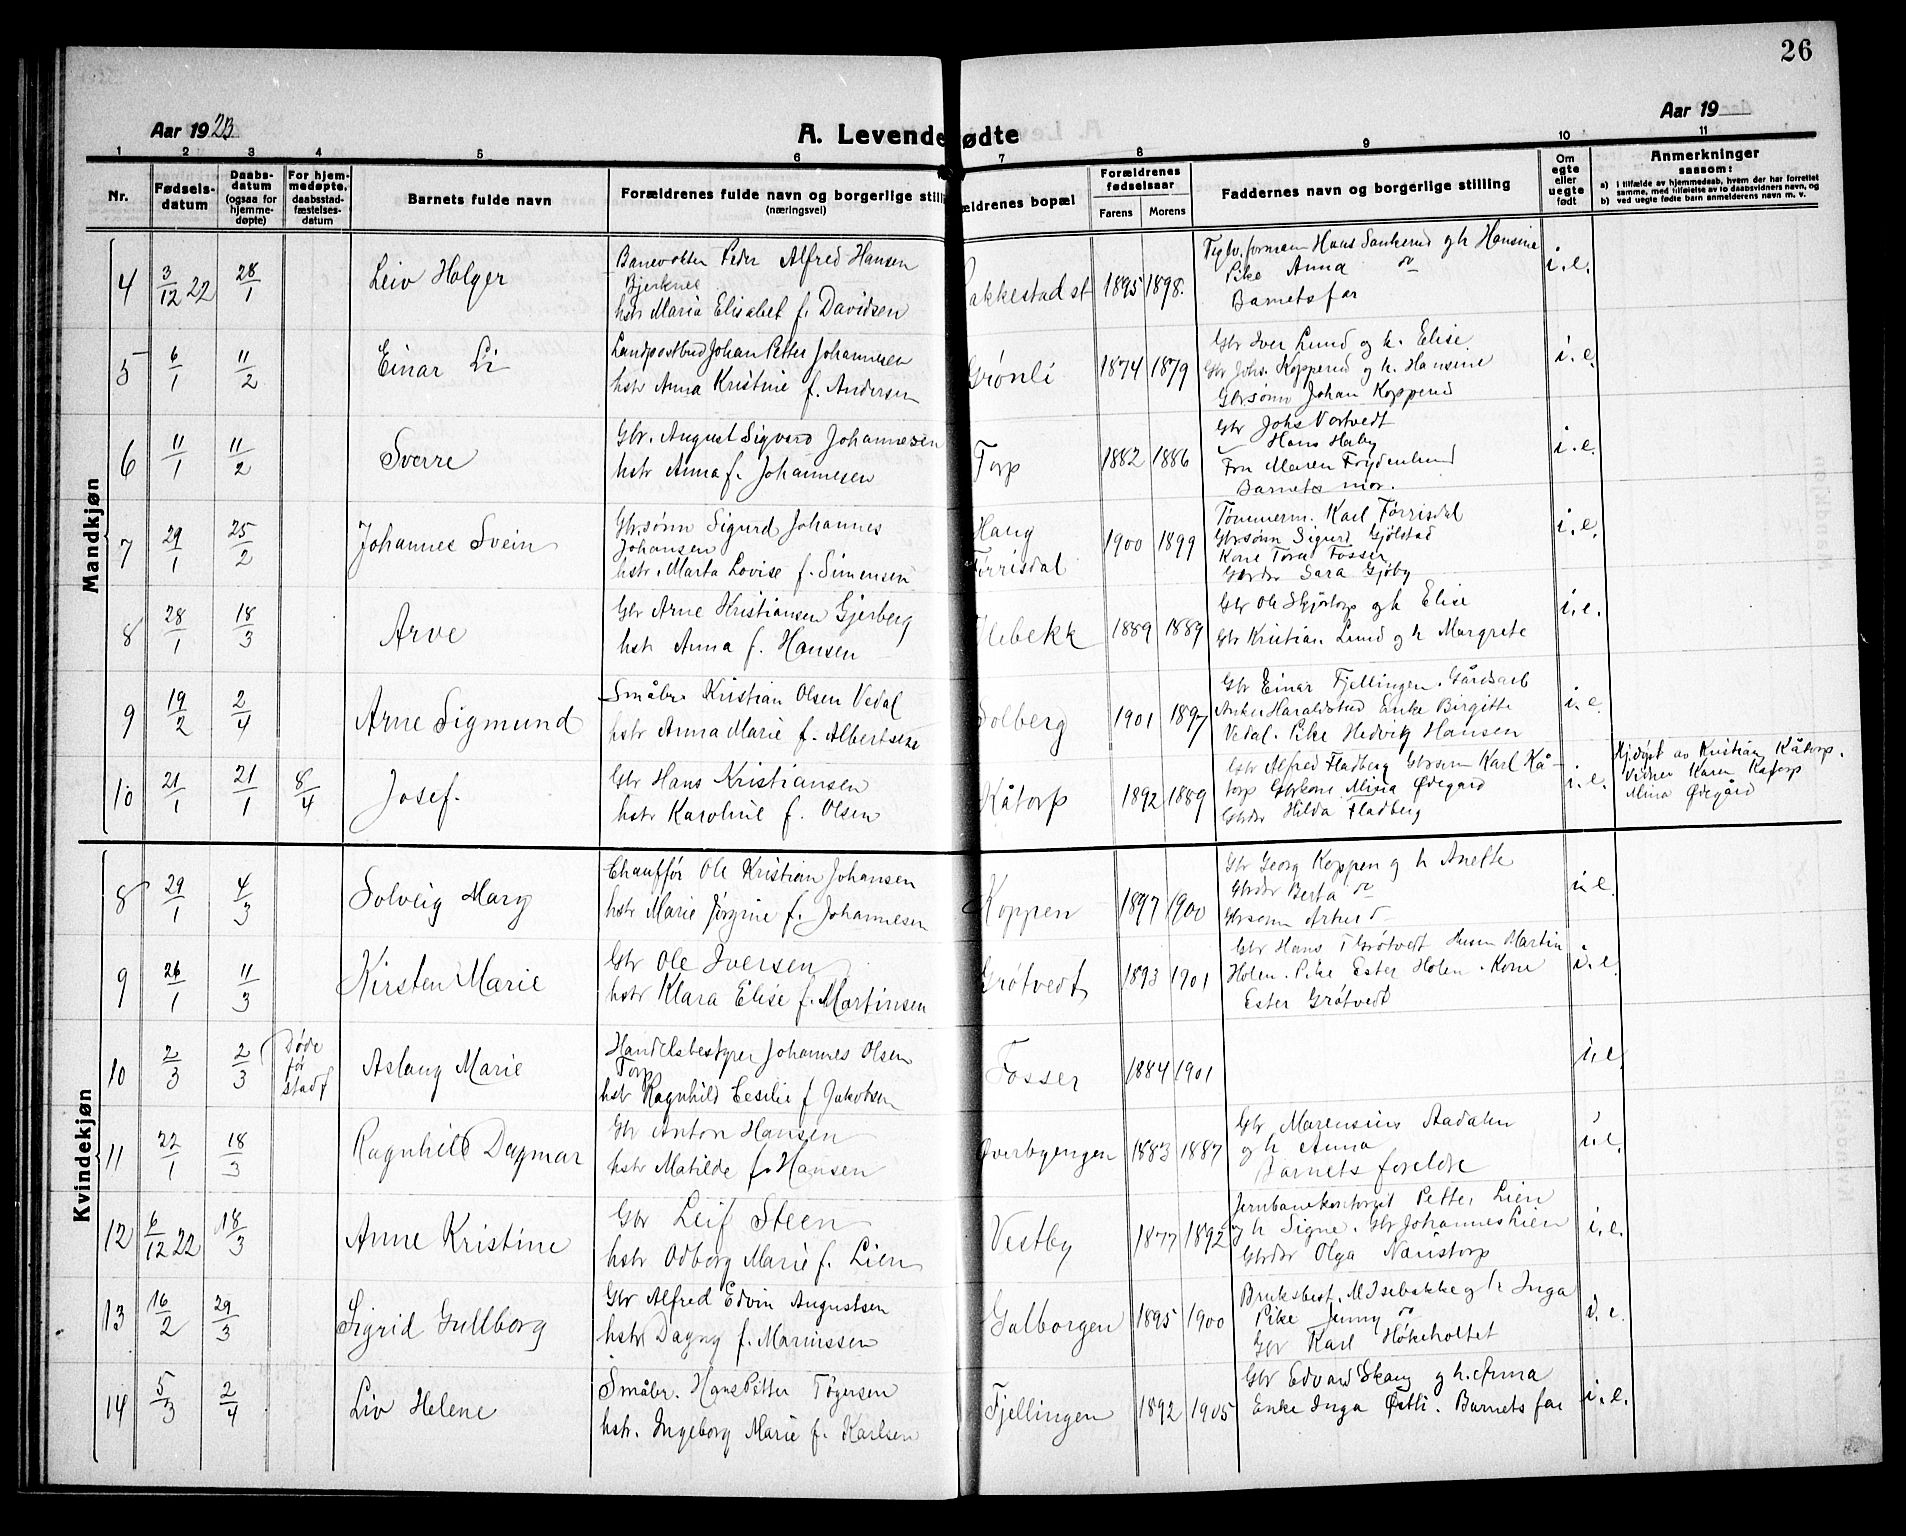 26
Aar 1923
A. Levendefødte
Aar 19
1 2 3 4 5 6 7 8 9 10 11
Nr.
Fødsels-
datum
Daabs-
datum
(ogsaa for
hjemme-
døpte)
For hjem-
medøpte,
daabsstad-
fæstelses-
datum
Barnets fulde navn
Forældrenes fulde navn og borgerlige stilli
(næringsvei)
ældrenes bopæl
Forældrenes
fødselsaar
Farens Morens
Faddernes navn og borgerlige stilling
Om
egte
eller
uegte
født
Anmerkninger
saasom:
a) i tilfælde av hjemmedaab, hvem der har forrettet
samme, med tilføielse av to daabsvidners navn, og
b) ved uegte fødte barn anmelderens navn m. v.
Mandkjøn
4 3/12 22 28/1 Leiv Holger
Banevokter Peder Alfred Hansen
Bjerknes
hstr Maria Elisabet f. Davidsen
akkestad st 1895 1898.
Teglv. formann Hans Sankerud og h Hansine
Pike Anna do
Barnets far
i. e.
5 6/1 11/2 Einar Li
Landpostbud Johan Petter Johannesen
hstr Anna Kristine f. Andersen
Grönli 1874 1879
Gbr Iver Lund og h. Elise
Gbr Johs. Kopperud og h. Hansine
Gbrsönn Johan Kopperud
i. e.
6 11/1 11/2 Sverre
Gbr. August Sigvard Johannesen
hstr Anna f. Johannesen
Torp 1882 1886
Gbr Johs Vortvedt
Hans Haby
Fru Maren Frydenlund
Barnets mor.
i. e.
7 29/1 25/2 Johannes Svein
Gbrsönn Sigurd Johannes
Johansen
hstr. Marta Lovise f. Simensen
Haug
Törrisdal 1900 1899
Tömmerm. Karl Törrisdal
Gbrsönn Sigurd Gjölstad
Kone Tora Fosser
Gbrdtr Sara Gjöby
i. e.
8 28/1 18/3 Arve
Gbr Arne Kristiansen Gjerberg
hstr Anna f. Hansen
lebekk 1889 1889
Gbr Ole Skjörtorp og h Elise
Gbr Kristian Lund og h Margrete
i. e.
9 19/2 2/4 Arne Sigmund
Småbr. Kristian Olsen Vedal
hstr Anna Marie f. Albertsen
Solberg 1901 1897
Gbr Einar Fjellingen. Gårdsarb
Anker Haraldstad Enke Birgitte
Vedal. Pike Hedvig Hansen
i. e.
10 21/1 21/1 8/4 Josef.
Gbr Hans Kristiansen
hstr Karoline f. Olsen
Kåtorp 1892 1889
Gbr Alfred Fladberg Gbrsönn Karl Kå-
torp Gbrkone Mina Ödegård
Gbrdtr Hilda Fladberg
i. e.
Hj.döpt av Kristian Kåtorp.
Vidner Karen Kåtorp
Mina Ödegård
Kvindekjøn
8 29/1 4/3 Solveig Mary
Chaufför Ole Kristian Johansen
hstr Marie Jörgine f. Johannesen
Koppen 1897 1900
Gbr Georg Koppen og h Anette
Gbrdtr Berta do
Gbrsönn Artur do
i. e.
9 26/1 11/3 Kirsten Marie
Gbr Ole Iversen
hstr Klara Elise f. Martinsen
Grötvedt 1893 1901
Gbr Hans T Grötvedt Husm Martin
Holen. Pike Ester Holen. Kone
Ester Grötvedt
i. e.
10 2/3 2/3 Döde
för
stadf
Aslaug Marie
Handelsbestyrer Johannes Olsen
Torp
hstr Ragnhild Cesilie f Jakobsen
Fosser 1884 1901
i. e.
11 22/1 18/3 Ragnhild Dagmar
Gbr Anton Hansen
hstr Matilde f. Hansen
Överbyengen 1883 1887
Gbr Marensius Aadalen
og h Anna
Barnets foreldre
i. e.
12 6/12 22 18/3 Anne Kristine
Gbr Leif Steen
hstr Odborg Marie f. Lien
Vestby 1877 1892
Jernbanekontorist Petter Lien
og h Signe. Gbr Johannes Lien
Gbrdtr Olga Naristorp
i. e.
13 16/2 29/3 Sigrid Gullborg
Gbr Alfred Edvin Augustsen
hstr Dagny f. Mariussen
Galborgen 1895 1900
Bruksbest. M Isebakke og h Inga
Pike Jenny do
Gbr Karl Hökeholtet
i. e.
14 5/3 2/4 Liv Helene
Småbr. Hans Petter Tögersen
hstr. Ingeborg Marie f. Karlsen
Fjellingen 1892 1905
Gbr Edvard Skaug og h. Anna
Enke Inga Östli. Barnets far
i. e.